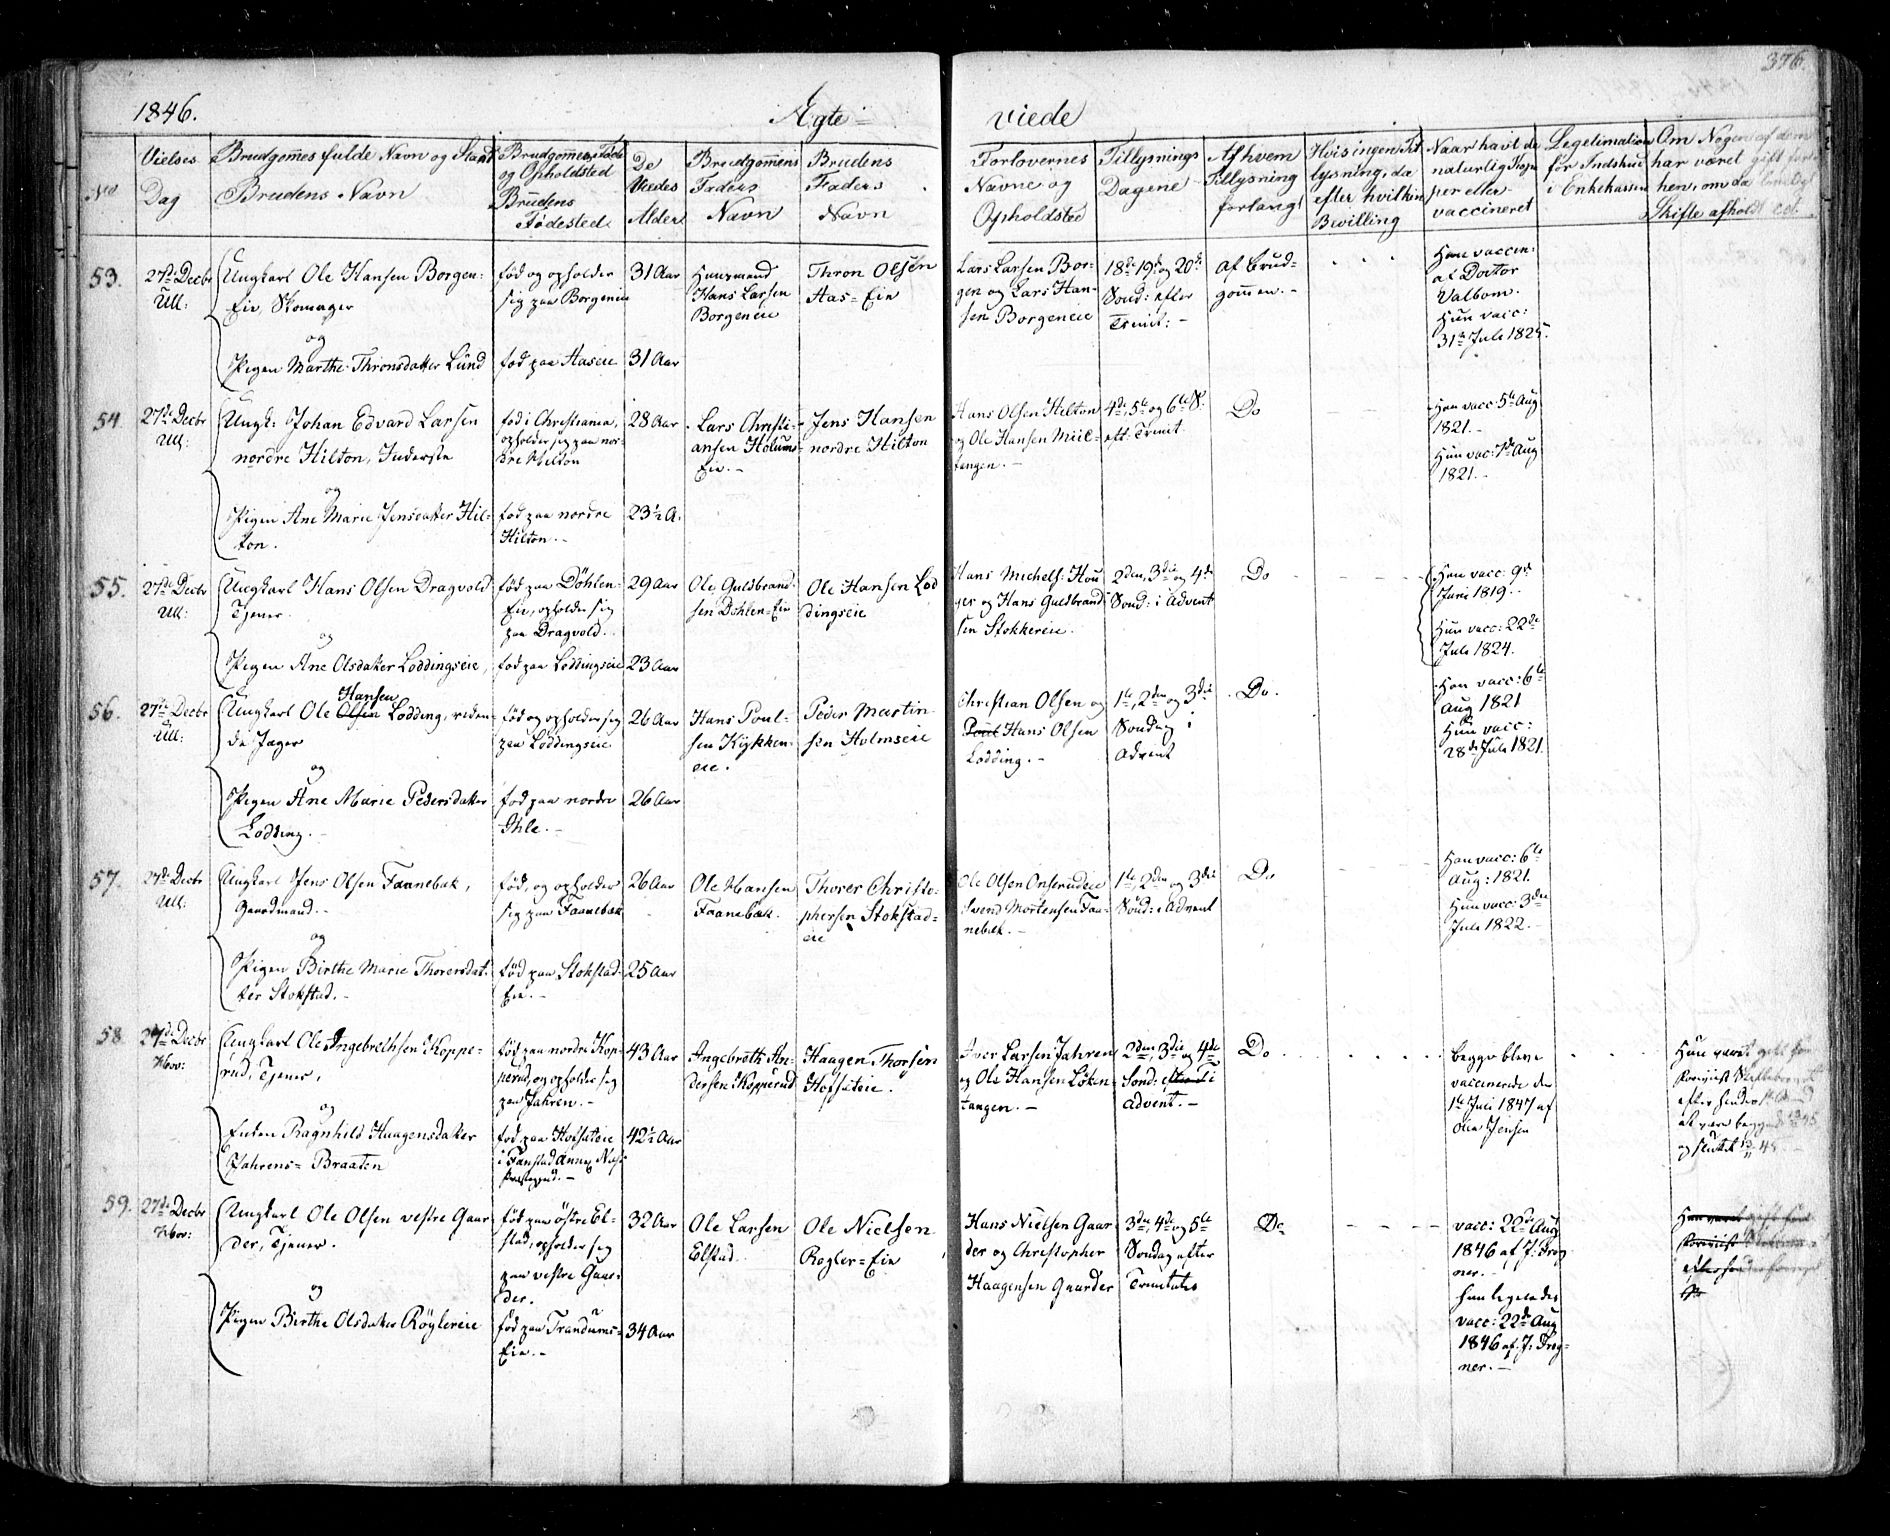 376.
1846.
Ægte-
viede
No
Vielses
Dag
Brudgommes fulde Navn og Stand
Brudens Navn
Brudgommens Føde
og Opholdsted
Brudens
Fødested
De
Viedes
Alder
Brudgommens
Faders
Navn
Brudens
Faders
Navn
Forlovernes
Navne og
Opholdsted
Tillysnings
Dagene
Af hvem
Tillysning
forlangt
Hvis ingen Til
lysning, da
efter hvilken
Bevilling
Naar havt de
naturlig Kop
per eller
vaccineret
Legetimation
for Indskud
i Enkekassen
Om Nogen af dem
har været gift før
hen, om da lovligt
Skifte afholdt ect.
53.
27de Decbr
Ull:
Ungkarl Ole Hansen Borgen-
Eie, Skomager
og
Pigen Marthe Thronsdatter Lund
fød og opholder
sig paa Borgeneie
fød paa Aaseie
31 Aar
31 Aar
Huusmand
Hans Larsen
Borgeneie
Thron Olsen
Aas=Eie
Lars Larsen Bor-
gen og Lars Han-
sen Borgeneie
18de 19de og 20de
Sønd: efter
Trinit: -
af Brud-
gommen. -
Han vaccin:
af Doctor
Valbom.
Hun vacc:
31te Juli 1825.
54
27de Decbr
Ull:
Ungk: Johan Edvard Larsen
nordre Hilton, Inderste
og
Pigen Ane Marie Jensdatter Hil-
ton.
fød i Christiania,
opholder sig paa nor-
dre Hilton
fød paa nordre
Hilton. -
28 Aar
23½ A.
Lars Christi-
ansen Holums-
Eie. -
Jens Hansen
nordre Hilton
Hans Olsen Hilton
og Ole Hansen Miil-
tangen. -
4de, 5te og 6te S.
eft. Trinit.
Do
Han vacc: 5te Aug
1821. -
Hun vac: 7de Aug
1821. -
55.
27de Decbr
Ull:
Ungkarl Hans Olsen Dragvold
Tjener.
og
Pigen Ane Olsdatter Loddingseie,
fød paa Døhlen-
Eie, opholder sig
paa Dragvold.
fød paa Loddingseie
29 Aar
23 Aar
Ole Guldbrand-
sen Døhlen=Eie
Ole Hansen Lod
dingseie
Hans Michels: Hou
ger og Hans Guldbrand
sen Stokkereie.
2den, 3die og 4de
Sønd: i Advent
Do
Han vacc: 9de
Juni 1819.
Hun vacc: 22de
Juli 1824.
56.
27de Decbr
Ull:
Hansen
Ungkarl Ole Olsen Lodding, riden-
de Jæger
og
Pigen Ane Marie Pedersdatter
Lodding. -
fød og opholder sig
paa Loddingseie
fød paa nordre
Ihle. -
26 Aar
26 Aar
Hans Poul-
sen Kykken-
eie.
Peder Martin
sen Holmseie
Christian Olsen og
Poul Hans Olsen
Lodding. -
1te, 2den og 3die
Søndag i
Advent
Do.
Han vacc: 6te
Aug 1821
Hun vacc:
28de Juli 1821.
57.
27de Decbr
Ull:
Ungkarl Jens Olsen Faanebæk,
Gaardmand. -
og
Pigen Birthe Marie Thorersdat-
ter Stokstad. -
fød, og opholder
sig paa Faanebæk
fød paa Stokstad-
Eie. -
26 Aar
25 Aar
Ole Hansen
Faanebæk.
Thorer Christo-
phersen Stokstad-
eie
Ole Olsen Onsrudeie
Svend Mortensen Faa-
nebæk. -
1te, 2den og 3die
Sønd: i Advent
Do
Han vacc: 6te
Aug: 1821.
Hun vacc: 3die
Juli 1822. -
58
27de Decbr
Hov:
Ungkarl Ole Ingebrethsen Koppe-
rud, Tjener,
og
Enken Ragnhild Haagensdatter
Jahrens=Braaten
fød paa nordre Kop-
perud, og opholder sig
paa Jahren. -
fød paa Hofsæteie
i Fanstad Annex Næs
Præstegjeld. -
43 Aar
42½ Aar
Ingebreth An-
dersen Kopperud
Haagen Thorsen
Hofsæteie.
Iver Larsen Jahren
og Ole Hansen Løken-
tangen. -
2den, 3die og 4de
Sønd: efter T i
Advent. -
Do
begge bleve
vaccinerede den
1te Juni 1847 af
Jensen
Hun været gift før
efter hendes Mand
og sluttet
59.
27de Decbr
Hov:
Ungkarl Ole Olsen vestre Gaar
der, Tjener.
og
Pigen Birthe Olsdatter Røglereie
fød paa østre El-
stad, opholder sig
paa vestre Gaar-
der.
fød paa Trandums-
Eie. -
32 Aar
34 Aar
Ole Larsen
Elstad.
Ole Nielsen
Røgler=Eie
Hans Nielsen Gaar
der og Christopher
Haagensen Gaarder
3die, 4de og 5te
Søndag efter
Trinitatis
Do
vacc: 22de Aug
1846 af J: Frog
ner. -
hun ligeledes
vacc: 22de Aug
1846 af J: Frog-
ner. -
Hun været gift før